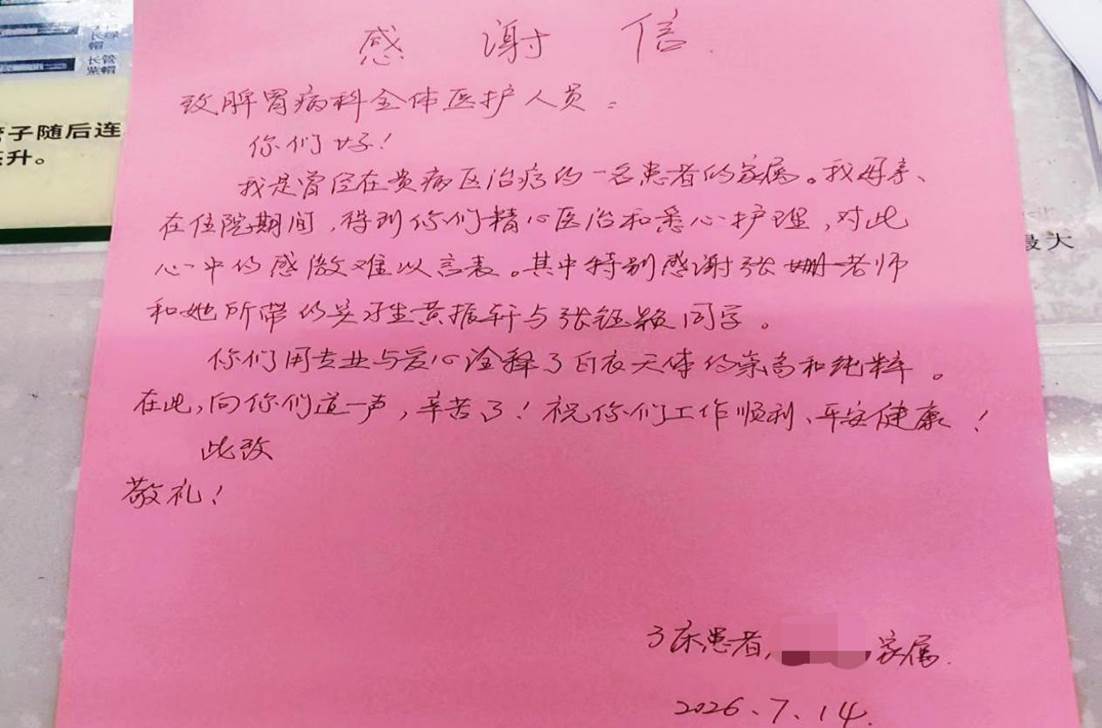 长绿
帽
长管
紫帽
管子随后连
升。
最大
感谢信
致脾胃病科全体医护人员：
你们好！
我是曾经在贵病区治疗的一名患者的家属。我母亲、
在住院期间，得到你们精心医治和悉心护理，对此
心中的感激难以言表。其中特别感谢张姗老师
和她所带的实习生黄振轩与张钰颖同学。
你们用专业与爱心诠释了白衣天使的崇高和纯粹。
在此，向你们道一声，辛苦了！祝你们工作顺利、平安健康！
此致
敬礼！
床患者，家属.
2026.7.14.